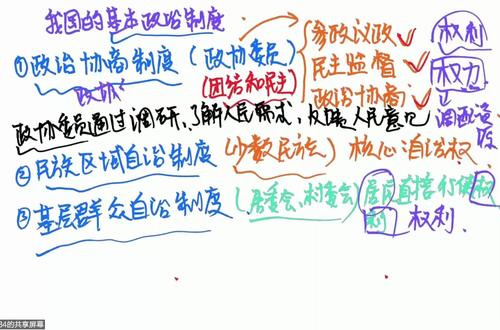 我国的基本政治制度
①政治协商制度（政协委员）
（团结和民主）
参政议政✓
民主监督✓
政治协商✓
权利
权力
政协
政协委员通过调研，了解人民需求，反馈人民意见
②民族区域自治制度（少数民族）核心自治权
③基层群众自治制度（居委会、村委会）居民直接行使权利
权利
84的共享屏幕